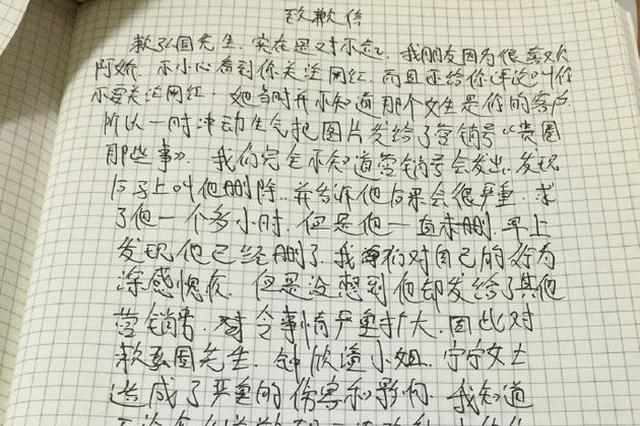 致歉信
赖弘国先生.实在是对不起.我朋友因为很喜欢
阿娇.不小心看到你关注网红.而且还给你评论叫你
不要关注网红.她当时并不知道那个女生是你的客户
所以一时冲动生气把图片发给了营销号《贵圈
那些事》.我们完全不知道营销号会发出.发现
后马上叫他删除.并告诉他后果会很严重.求
了他一个多小时.但是他一直未删.早上
发现他已经删了.我们对自己的行为
深感愧疚.但是没想到他却发给了其他
营销号.令事情严重扩大.因此对
赖弘国先生.钟欣潼小姐.宁宁女士
造成了严重的伤害和影响.我知道